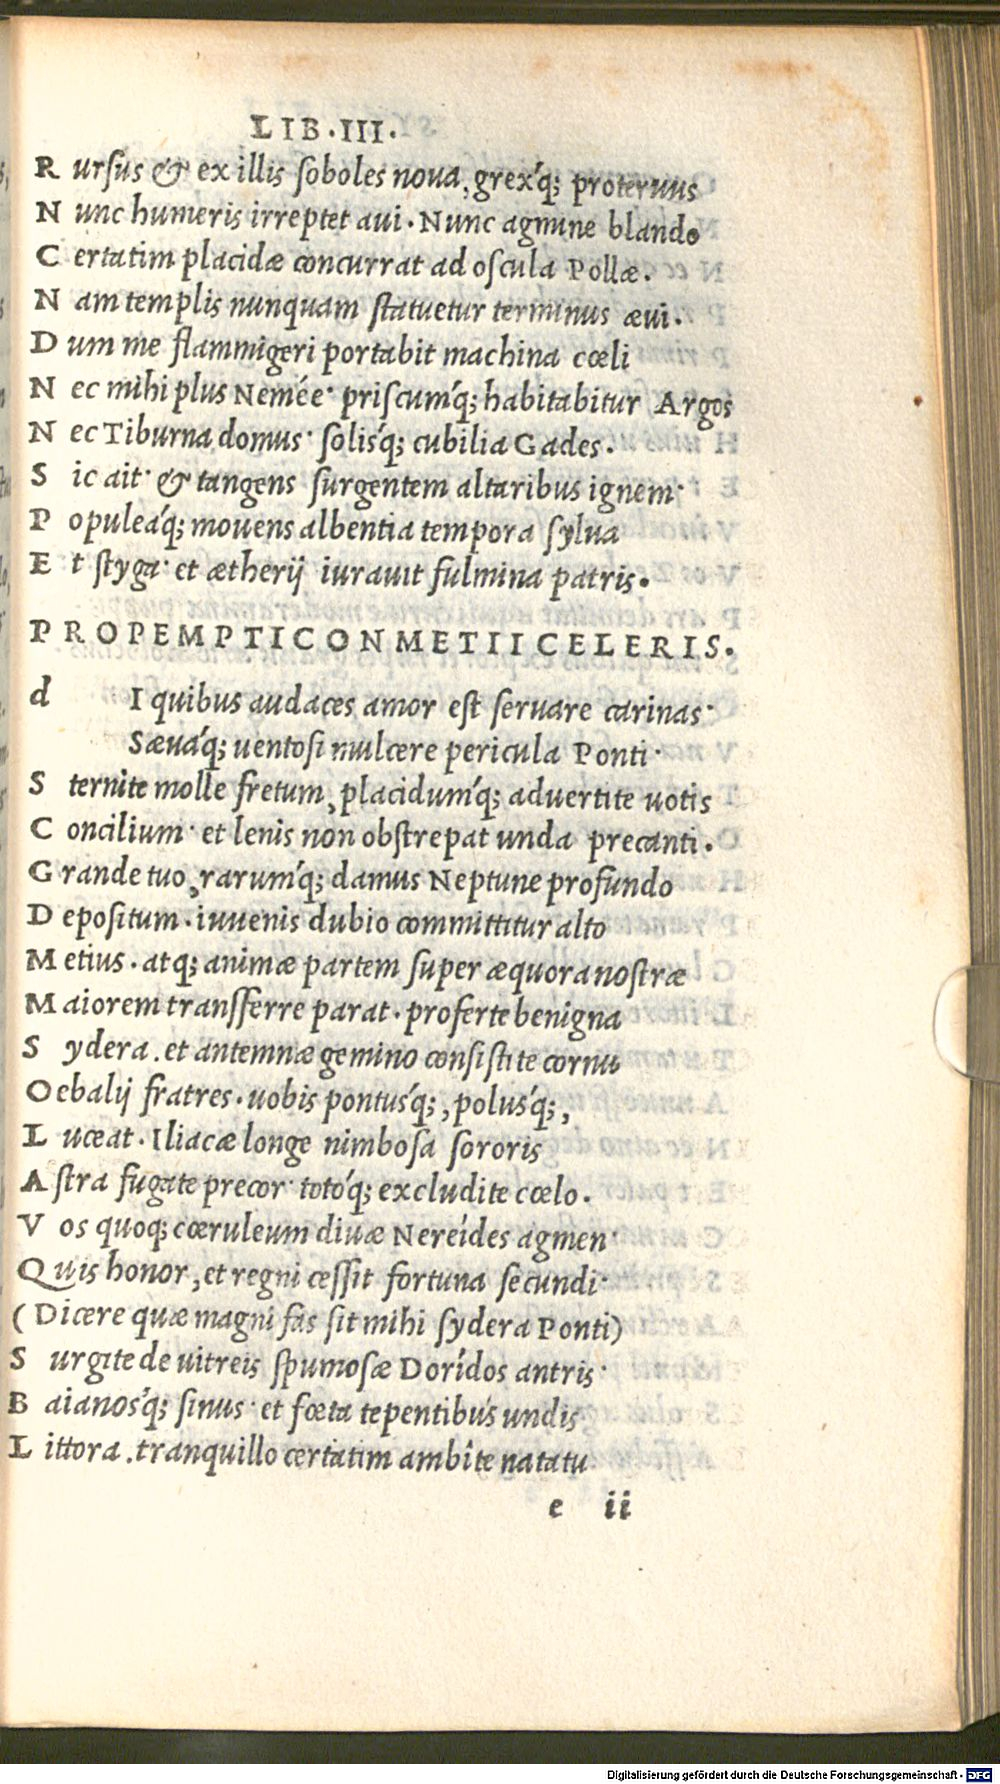 LIB.III.
R ursus & ex illis soboles nova, grex'q; proteruus
N unc humeris irreptet aui. Nunc agmine blando
C ertatim placidæ concurrat ad oscula Pollæ.
N am templis nunquam statuetur terminus æui.
D um me flammigeri portabit machina cœli
N ec mihi plus Nemée· priscum'q; habitabitur Argos
N ec Tiburna domus· solis'q; cubilia Gades.
S ic ait· & tangens surgentem altaribus ignem·
P opulea'q; mouens albentia tempora sylua
E t styga· et ætherij iurauit fulmina patris.
PROPEMPTICON METII CELERIS.
d I quibus audaces amor est seruare carinas·
Sæua'q; uentosi mulcere pericula Ponti·
S ternite molle fretum, placidum'q; aduertite uotis
C oncilium· et lenis non obstrepat unda precanti.
G rande tuo, rarum'q; damus Neptune profundo
D epositum. iuuenis dubio committitur alto
M etius. atq; animæ partem super æquora nostræ
M aiorem transferre parat. proferte benigna
S ydera. et antemnæ gemino consistite cornu
O ebalij fratres. uobis pontus'q;, polus'q;,
L uceat. Iliacæ longe nimbosa sororis
A stra fugate precor· toto'q; excludite cœlo.
V os quoq; cœruleum diuæ Nereídes agmen·
Q uis honor, et regni cessit fortuna secundi·
(Dicere quæ magni fas sit mihi sydera Ponti)
S urgite de uitreis spumosæ Dorídos antris·
B aianos'q; sinus· et fœta tepentibus undis
L ittora. tranquillo certatim ambîte natatu
e ii
Digitalisierung gefördert durch die Deutsche Forschungsgemeinschaft - DFG